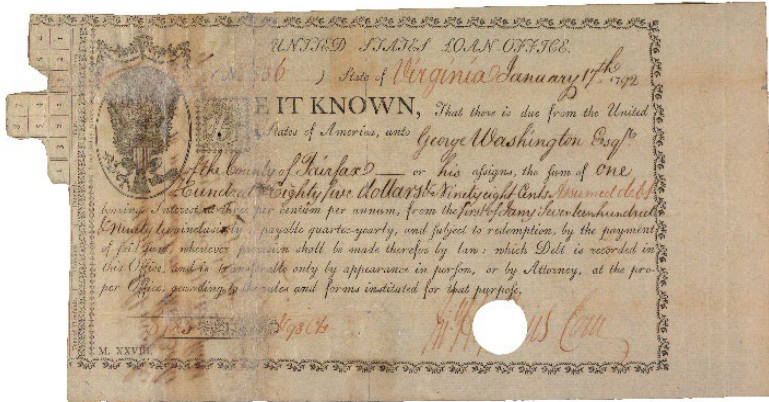 UNITED STATES LOAN OFFICE.
(No. 336 ) State of Virginia January 17th 1792
BE IT KNOWN, That there is due from the United
States of America, unto George Washington Esqr
of the County of Fairfax — or his assigns, the sum of one
Hundred Eighty five dollars & Ninety eight Cents Assumed debt
bearing Interest at three per centum per annum, from the first of Jany Seventeen hundred
& ninety two inclusively, payable quarter-yearly, and subject to redemption, by the payment
of said sum, whenever provision shall be made therefor by law: which Debt is recorded in
this Office, and is transferable only by appearance in person, or by Attorney, at the pro-
per Office, according to the rules and forms instituted for that purpose.
98 Cts
Com
M. XXVIII.